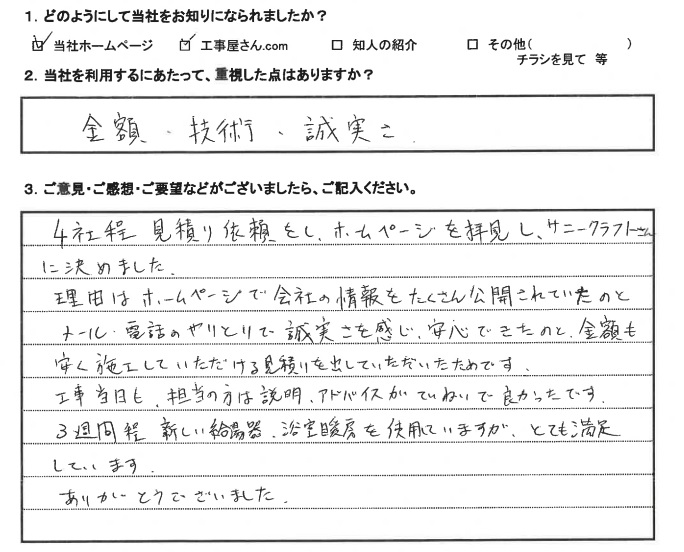 1. どのようにして当社をお知りになられましたか？
☑ 当社ホームページ ☑ 工事屋さん.com □ 知人の紹介 □ その他( )
チラシを見て 等
2. 当社を利用するにあたって、重視した点はありますか？
金額、技術、誠実さ.
3. ご意見・ご感想・ご要望などがございましたら、ご記入ください。
4社程 見積り依頼をし、ホームページを拝見し、サニークラフトさん
に決めました.
理由はホームページで会社の情報をたくさん公開されていたのと
メール・電話のやりとりで誠実さを感じ、安心できたのと、金額も
安く施工していただける見積りを出していただいたためです.
工事当日も、担当の方は説明、アドバイスがていねいで良かったです.
3週間程 新しい給湯器、浴室暖房を使用していますが、とても満足
しています.
ありがとうございました.